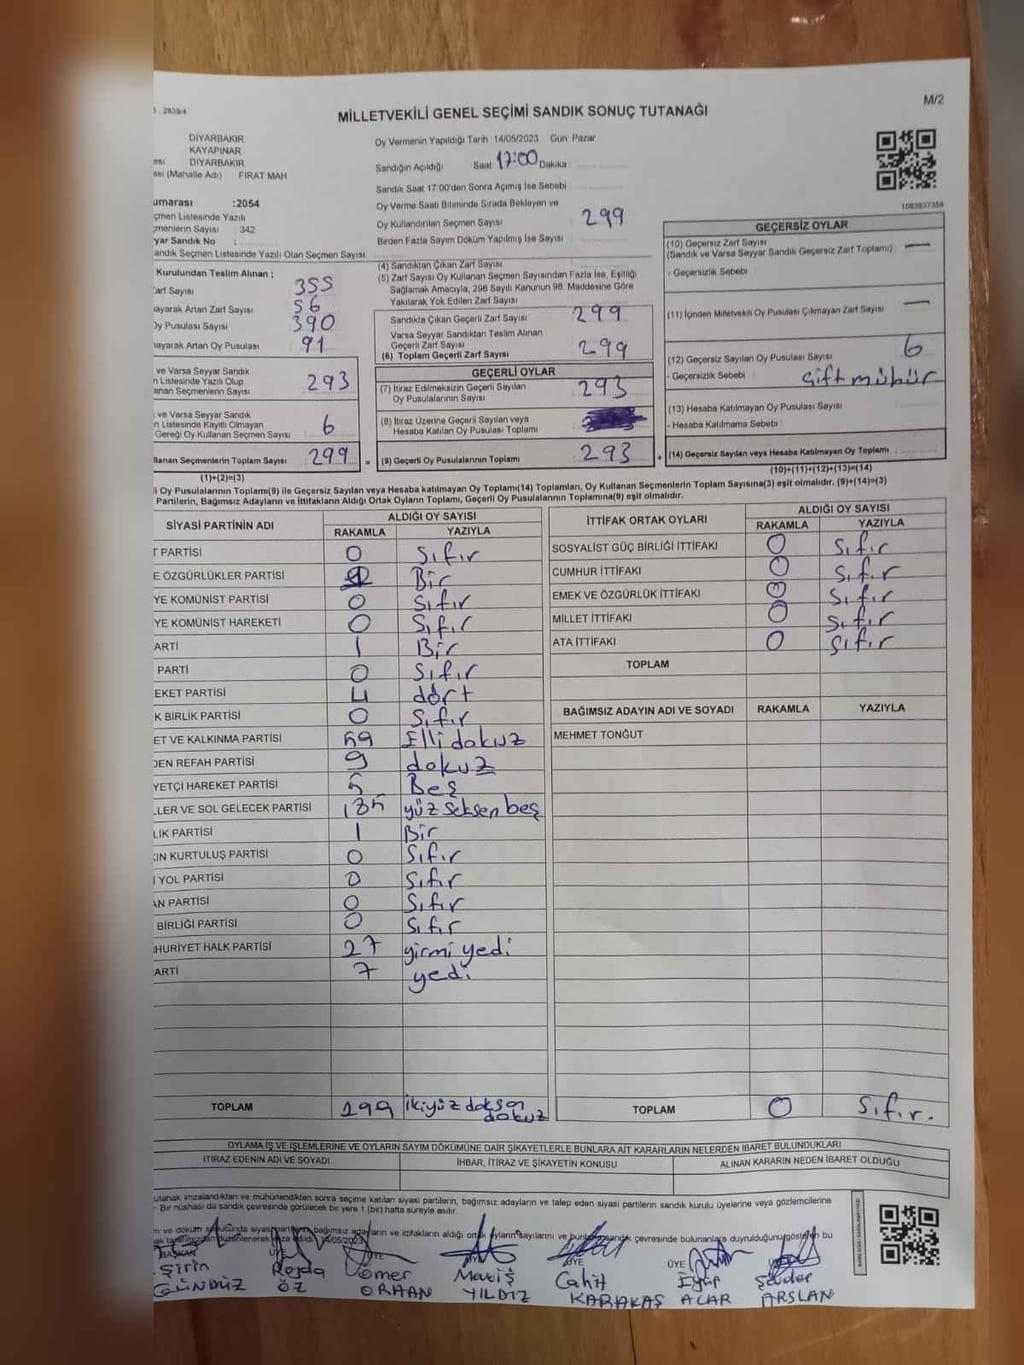 2839/4
MİLLETVEKİLİ GENEL SEÇİMİ SANDIK SONUÇ TUTANAĞI
M/2
DİYARBAKIR
KAYAPINAR
DİYARBAKIR
(Mahalle Adı) FIRAT MAH
:2054
Listesinde Yazılı
Sayısı 342
Sandık No :
Sandık Seçmen Listesinde Yazılı Olan Seçmen Sayısı
Oy Vermenin Yapıldığı Tarih 14/05/2023 Gün Pazar
Sandığın Açıldığı Saat 17:00 Dakika
Sandık Saat 17:00'den Sonra Açımış İse Sebebi
Oy Verme Saati Bitiminde Sırada Bekleyen ve
Oy Kullandırılan Seçmen Sayısı 299
Birden Fazla Sayım Döküm Yapılmış İse Sayısı
1083837359
Kurulundan Teslim Alınan ;
Zarf Sayısı 355
Artan Zarf Sayısı 56
Oy Pusulası Sayısı 390
Artan Oy Pusulası 91
ve Varsa Seyyar Sandık
Listesinde Yazılı Olup
Seçmenlerin Sayısı 293
ve Varsa Seyyar Sandık
Listesinde Kayıtlı Olmayan
Gereği Oy Kullanan Seçmen Sayısı 6
Seçmenlerin Toplam Sayısı 299
(1)+(2)=(3)
(4) Sandıktan Çıkan Zarf Sayısı
(5) Zarf Sayısı Oy Kullanan Seçmen Sayısından Fazla İse, Eşitliği
Sağlamak Amacıyla, 298 Sayılı Kanunun 98. Maddesine Göre
Yakılarak Yok Edilen Zarf Sayısı
Sandıkta Çıkan Geçerli Zarf Sayısı 299
Varsa Seyyar Sandıktan Teslim Alınan
Geçerli Zarf Sayısı
(6) Toplam Geçerli Zarf Sayısı 299
GEÇERLİ OYLAR
(7) İtiraz Edilmeksizin Geçerli Sayılan
Oy Pusulalarının Sayısı 293
(8) İtiraz Üzerine Geçerli Sayılan veya
Hesaba Katılan Oy Pusulası Toplamı
= (9) Geçerli Oy Pusulalarının Toplamı 293 +
GEÇERSİZ OYLAR
(10) Geçersiz Zarf Sayısı —
(Sandık ve Varsa Seyyar Sandık Geçersiz Zarf Toplamı)
- Geçersizlik Sebebi
(11) İçinden Milletvekili Oy Pusulası Çıkmayan Zarf Sayısı —
(12) Geçersiz Sayılan Oy Pusulası Sayısı 6
- Geçersizlik Sebebi Çift mühür
(13) Hesaba Katılmayan Oy Pusulası Sayısı
- Hesaba Katılmama Sebebi
(14) Geçersiz Sayılan veya Hesaba Katılmayan Oy Toplamı
(10)+(11)+(12)+(13)=(14)
Oy Pusulalarının Toplamı(9) ile Geçersiz Sayılan veya Hesaba katılmayan Oy Toplamı(14) Toplamları, Oy Kullanan Seçmenlerin Toplam Sayısına(3) eşit olmalıdır. (9)+(14)=(3)
Partilerin, Bağımsız Adayların ve İttifakların Aldığı Oyların Toplamı, Geçerli Oy Pusulalarının Toplamına(9) eşit olmalıdır.
SİYASİ PARTİNİN ADI ALDIĞI OY SAYISI
RAKAMLA YAZIYLA
PARTİSİ 0 Sıfır
ÖZGÜRLÜKLER PARTİSİ Bir
KOMÜNİST PARTİSİ 0 Sıfır
KOMÜNİST HAREKETİ 0 Sıfır
1 Bir
PARTİ 0 Sıfır
PARTİSİ 4 dört
BİRLİK PARTİSİ 0 Sıfır
VE KALKINMA PARTİSİ 59 Elli dokuz
REFAH PARTİSİ 9 dokuz
HAREKET PARTİSİ 5 Beş
VE SOL GELECEK PARTİSİ 185 yüz seksen beş
PARTİSİ 1 Bir
KURTULUŞ PARTİSİ 0 Sıfır
YOL PARTİSİ 0 Sıfır
PARTİSİ 0 Sıfır
BİRLİĞİ PARTİSİ 0 Sıfır
HALK PARTİSİ 27 yirmi yedi
7 yedi
TOPLAM 299 ikiyüz doksan dokuz
İTTİFAK ORTAK OYLARI ALDIĞI OY SAYISI
RAKAMLA YAZIYLA
SOSYALİST GÜÇ BİRLİĞİ İTTİFAKI 0 Sıfır
CUMHUR İTTİFAKI 0 Sıfır
EMEK VE ÖZGÜRLÜK İTTİFAKI 0 Sıfır
MİLLET İTTİFAKI 0 Sıfır
ATA İTTİFAKI 0 Sıfır
TOPLAM
BAĞIMSIZ ADAYIN ADI VE SOYADI RAKAMLA YAZIYLA
MEHMET TONĞUT
TOPLAM 0 Sıfır.
OYLAMA İŞ VE İŞLEMLERİNE VE OYLARIN SAYIM DÖKÜMÜNE DAİR ŞİKAYETLERLE BUNLARA AİT KARARLARIN NELERDEN İBARET BULUNDUKLARI
İTİRAZ EDENİN ADI VE SOYADI İHBAR, İTİRAZ VE ŞİKAYETİN KONUSU ALINAN KARARIN NEDEN İBARET OLDUĞU
imzalandıktan ve mühürlendikten sonra seçime katılan siyasi partilerin, bağımsız adayların ve talep eden siyasi partilerin sandık kurulu üyelerine veya gözlemcilerine
Bir nüshası da sandık çevresinde görülecek bir yere 1 (bir) hafta süreyle asılır.
ve döküm bağımsız adayların ve ittifakların aldığı sayılarını ve sandık çevresinde bulunanlara duyrulduğunu gösteren bu
14/05/2023
BAŞKAN ÜYE ÜYE ÜYE ÜYE
Şirin Rojda Ömer Maviş Cahit Eyüp
GÜNDÜZ ÖZ ORHAN YILDIZ KARAKAŞ ACAR ARSLAN